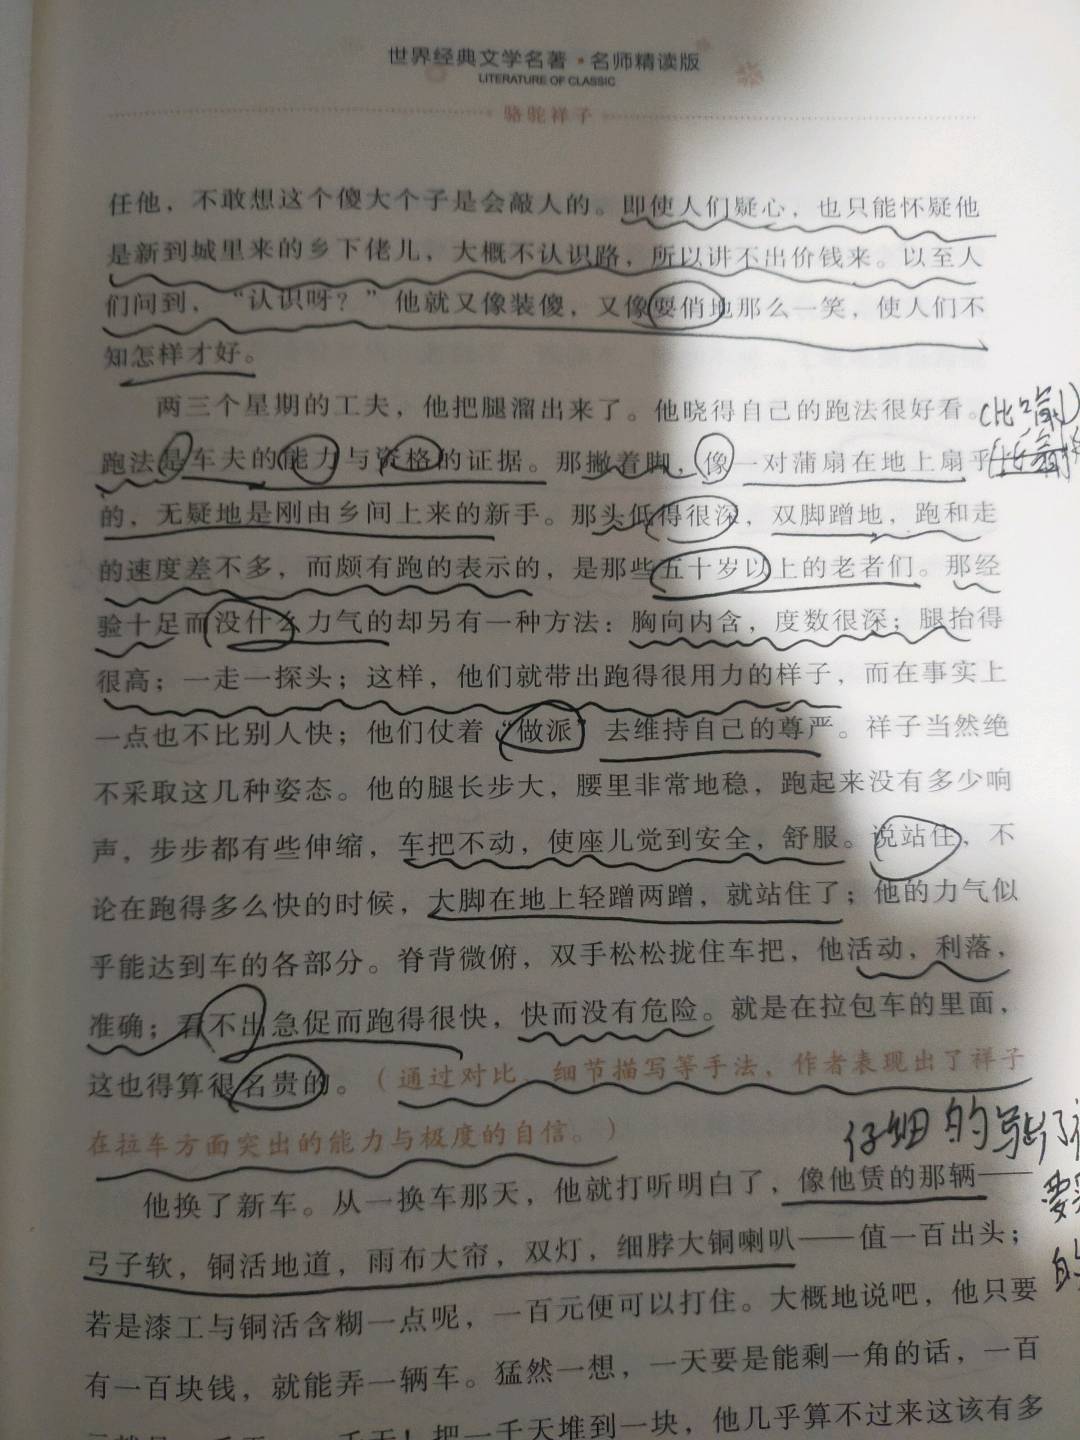 世界经典文学名著·名师精读版
LITERATURE OF CLASSIC
骆驼祥子
任他，不敢想这个傻大个子是会敲人的。即使人们疑心，也只能怀疑他
是新到城里来的乡下佬儿，大概不认识路，所以讲不出价钱来。以至人
们问到，“认识呀？”他就又像装傻，又像耍俏地那么一笑，使人们不
知怎样才好。
两三个星期的工夫，他把腿溜出来了。他晓得自己的跑法很好看。
跑法是车夫的能力与资格的证据。那撇着脚，像一对蒲扇在地上扇乎
的，无疑地是刚由乡间上来的新手。那头低得很深，双脚蹭地，跑和走
的速度差不多，而颇有跑的表示的，是那些五十岁以上的老者们。那经
验十足而没什么力气的却另有一种方法：胸向内含，度数很深；腿抬得
很高；一走一探头；这样，他们就带出跑得很用力的样子，而在事实上
一点也不比别人快；他们仗着“做派”去维持自己的尊严。祥子当然绝
不采取这几种姿态。他的腿长步大，腰里非常地稳，跑起来没有多少响
声，步步都有些伸缩，车把不动，使座儿觉到安全，舒服。说站住，不
论在跑得多么快的时候，大脚在地上轻蹭两蹭，就站住了；他的力气似
乎能达到车的各部分。脊背微俯，双手松松拢住车把，他活动，利落，
准确；看不出急促而跑得很快，快而没有危险。就是在拉包车的里面，
这也得算很名贵的。（通过对比、细节描写等手法，作者表现出了祥子
在拉车方面突出的能力与极度的自信。）
仔细的写出了
要
的
他换了新车。从一换车那天，他就打听明白了，像他赁的那辆——
弓子软，铜活地道，雨布大帘，双灯，细脖大铜喇叭——值一百出头；
若是漆工与铜活含糊一点呢，一百元便可以打住。大概地说吧，他只要
有一百块钱，就能弄一辆车。猛然一想，一天要是能剩一角的话，一百
一千天！把一千天堆到一块，他几乎算不过来这该有多